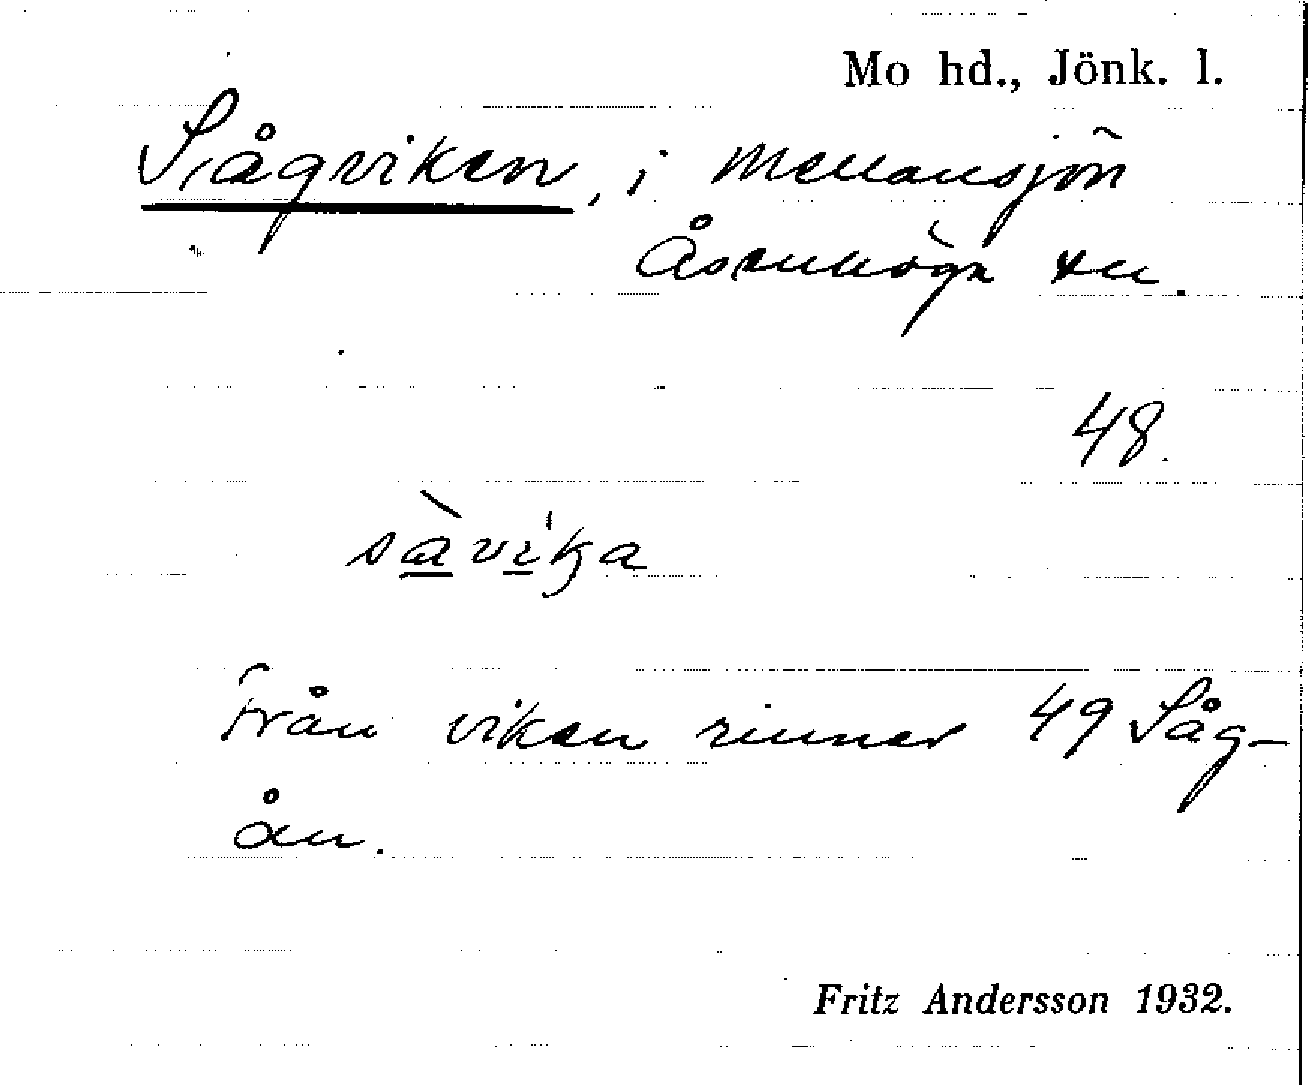 Mo hd., Jönk. l.
Sågviken, i Mellansjön
Åsenhöga sn.
48.
sàvika
Från viken rinner 49 Såg-
ån.
Fritz Andersson 1932.